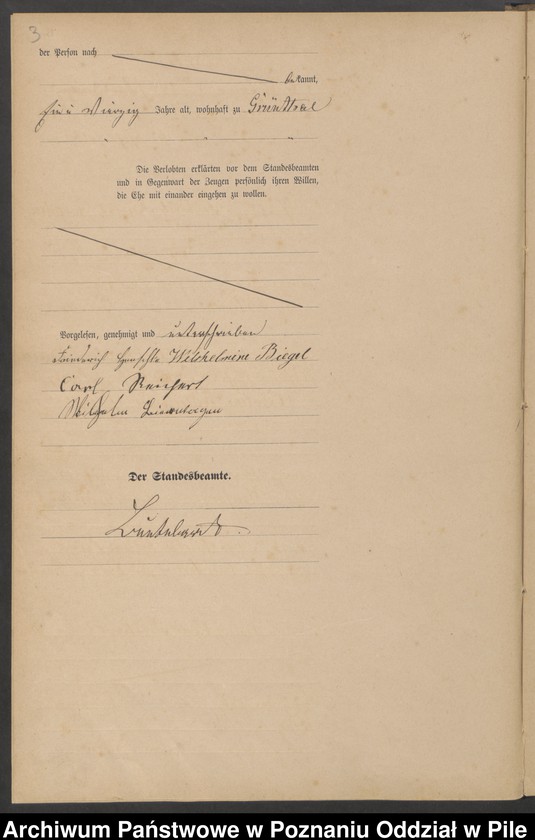 3
der Person nach
bekannt,
vierzig Jahre alt, wohnhaft zu Grünthal
Die Verlobten erklärten vor dem Standesbeamten
und in Gegenwart der Zeugen persönlich ihren Willen,
die Ehe mit einander eingehen zu wollen.
Vorgelesen, genehmigt und unterschrieben
Friederich Wilhelmine Biegel
Carl Reichert
Wilhelm
Der Standesbeamte.
Archiwum Państwowe w Poznaniu Oddział w Pile